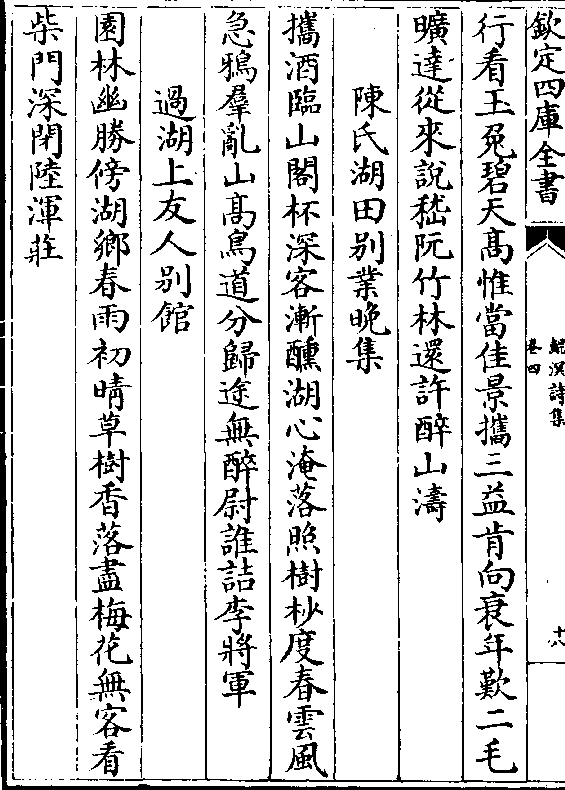 欽定四庫全書
鯤溟詩集
卷四
十八
行看玉兔碧天髙惟當佳景攜三益肯向衰年歎二毛
曠達從來說嵇阮竹林還許醉山濤
陳氏湖田别業晚集
攜酒臨山閣杯深客漸醺湖心淹落照樹杪度春雲風
急鴉羣亂山髙鳥道分歸途無醉尉誰詰李將軍
過湖上友人别館
園林幽勝傍湖鄉春雨初晴草樹香落盡梅花無客看
柴門深閉陸渾莊